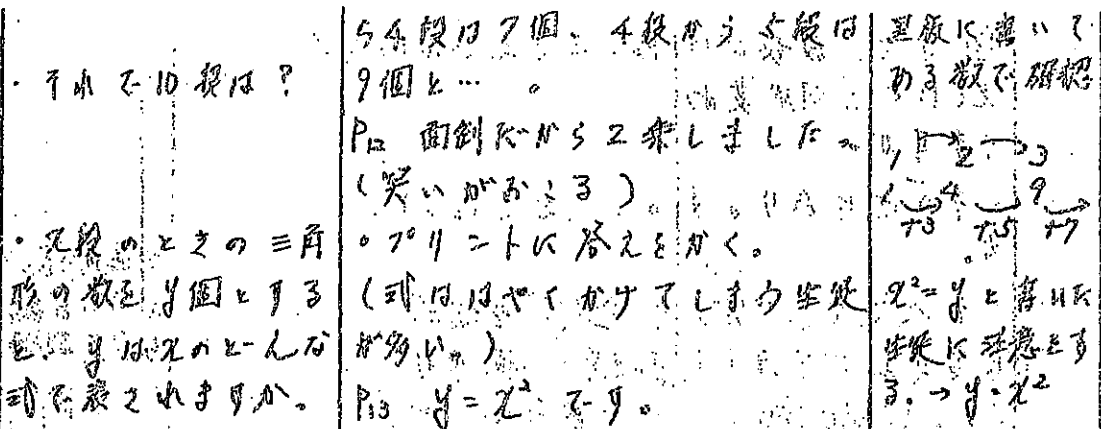 ・それで10段は？
・x段のときの三角
形の数をy個とする
と、yはxのどんな
式で表されますか。
ら4段は7個、4段から5段は
9個と…。
P12 面倒だから2乗しました。
（笑いがおこる）
○プリントに答えをかく。
（式ははやくかけてしまう生徒
が多い。）
P13 y=x²です。
黒板に書いて
ある数で確認
1 2 3
1 4 9
+3 +5 +7
x²=yと書いた
生徒に注意をす
る。→y=x²